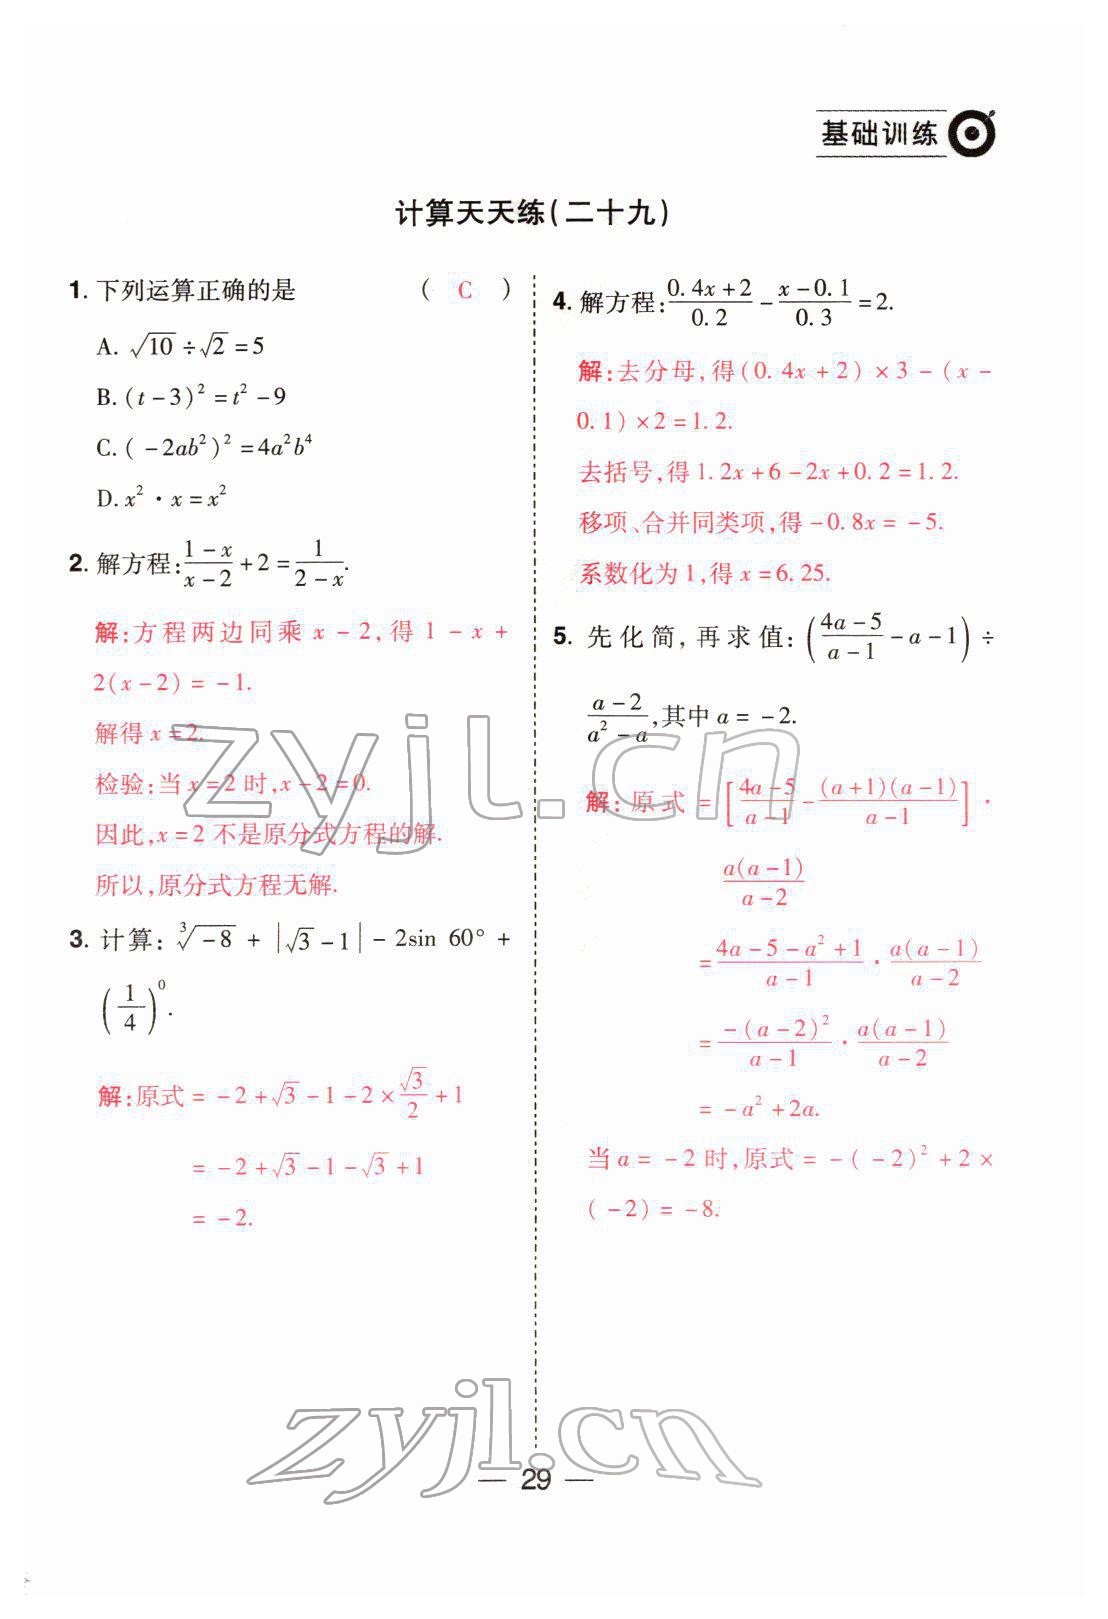 基础训练
计算天天练(二十九)
1. 下列运算正确的是 ( C )
A. √10 ÷ √2 = 5
B. (t-3)² = t² - 9
C. (-2ab²)² = 4a²b⁴
D. x² · x = x²
2. 解方程: (1-x)/(x-2) + 2 = 1/(2-x).
解:方程两边同乘 x-2,得 1-x+
2(x-2) = -1.
解得 x = 2.
检验:当 x = 2 时, x-2 = 0.
因此, x = 2 不是原分式方程的解.
所以,原分式方程无解.
3. 计算: ³√-8 + |√3 - 1| - 2sin 60° +
(1/4)⁰.
解:原式 = -2 + √3 - 1 - 2 × √3/2 + 1
= -2 + √3 - 1 - √3 + 1
= -2.
4. 解方程: (0.4x+2)/0.2 - (x-0.1)/0.3 = 2.
解:去分母,得 (0.4x+2) × 3 - (x-
0.1) × 2 = 1.2.
去括号,得 1.2x + 6 - 2x + 0.2 = 1.2.
移项、合并同类项,得 -0.8x = -5.
系数化为 1,得 x = 6.25.
5. 先化简,再求值: ((4a-5)/(a-1) - a - 1) ÷
(a-2)/(a²-a),其中 a = -2.
解:原式 = [(4a-5)/(a-1) - (a+1)(a-1)/(a-1)] ·
a(a-1)/(a-2)
= (4a-5-a²+1)/(a-1) · a(a-1)/(a-2)
= -(a-2)²/(a-1) · a(a-1)/(a-2)
= -a² + 2a.
当 a = -2 时,原式 = -(-2)² + 2 ×
(-2) = -8.
zyjl.cn
zyjl.cn
— 29 —